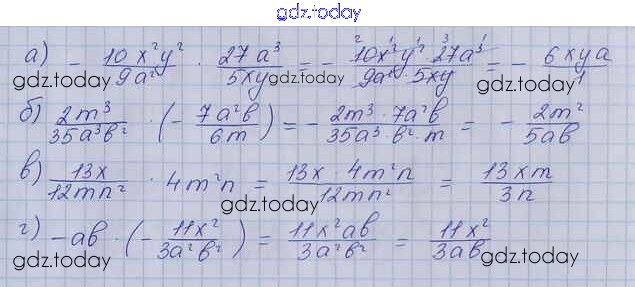 gdz.today
а) - \frac{10x²y²}{9a²} · \frac{27a³}{5xy} = - \frac{10x²y² 27a³}{9a² 5xy} = - \frac{6xya}{1}
gdz.today gdz.today gdz.today
б) \frac{2m³}{35a³b²} · (- \frac{7a²b}{6m}) = - \frac{2m³·7a²b}{35a³·b²·m} = - \frac{2m²}{5ab}
gdz.today gdz.today
в) \frac{13x}{12mn²} · 4m²n = \frac{13x · 4m²n}{12mn²} = \frac{13xm}{3n}
gdz.today
г) -ab · (- \frac{11x²}{3a²b²}) = \frac{11x²ab}{3a²b²} = \frac{11x²}{3ab}
gdz.today gdz.today